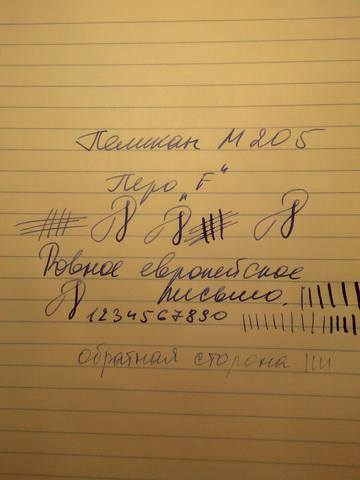 Пеликан М 205
Перо „F“
Ровное европейское
письмо.
1234567890
обратная сторона